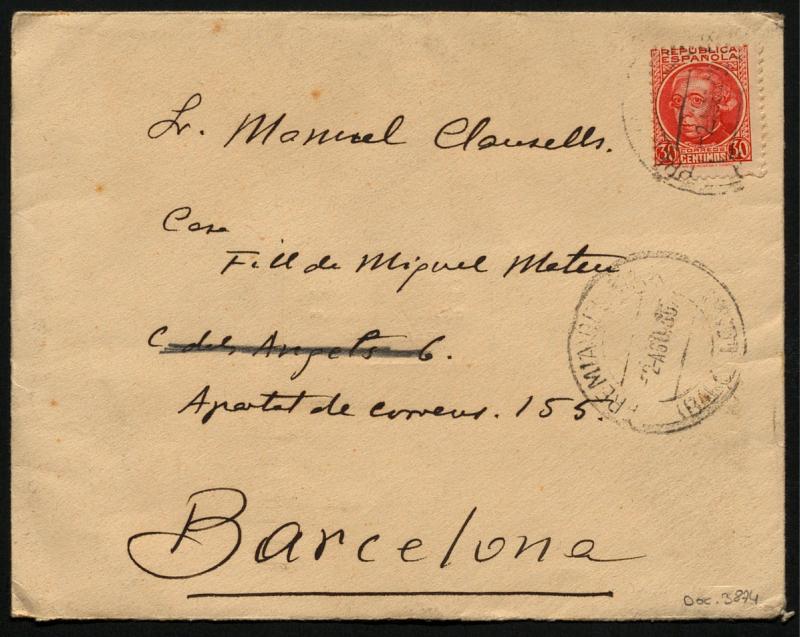 REPUBLICA
ESPAÑOLA
30 CORREOS 30
CENTIMOS
Sr. Manuel Clausells.
Casa
Fill de Miquel Mateu
C dels Angels 6.
Apartat de correus. 155.
Barcelona
PREMIA
2-AGO.35
(BARCELONA)
Doc. 3874